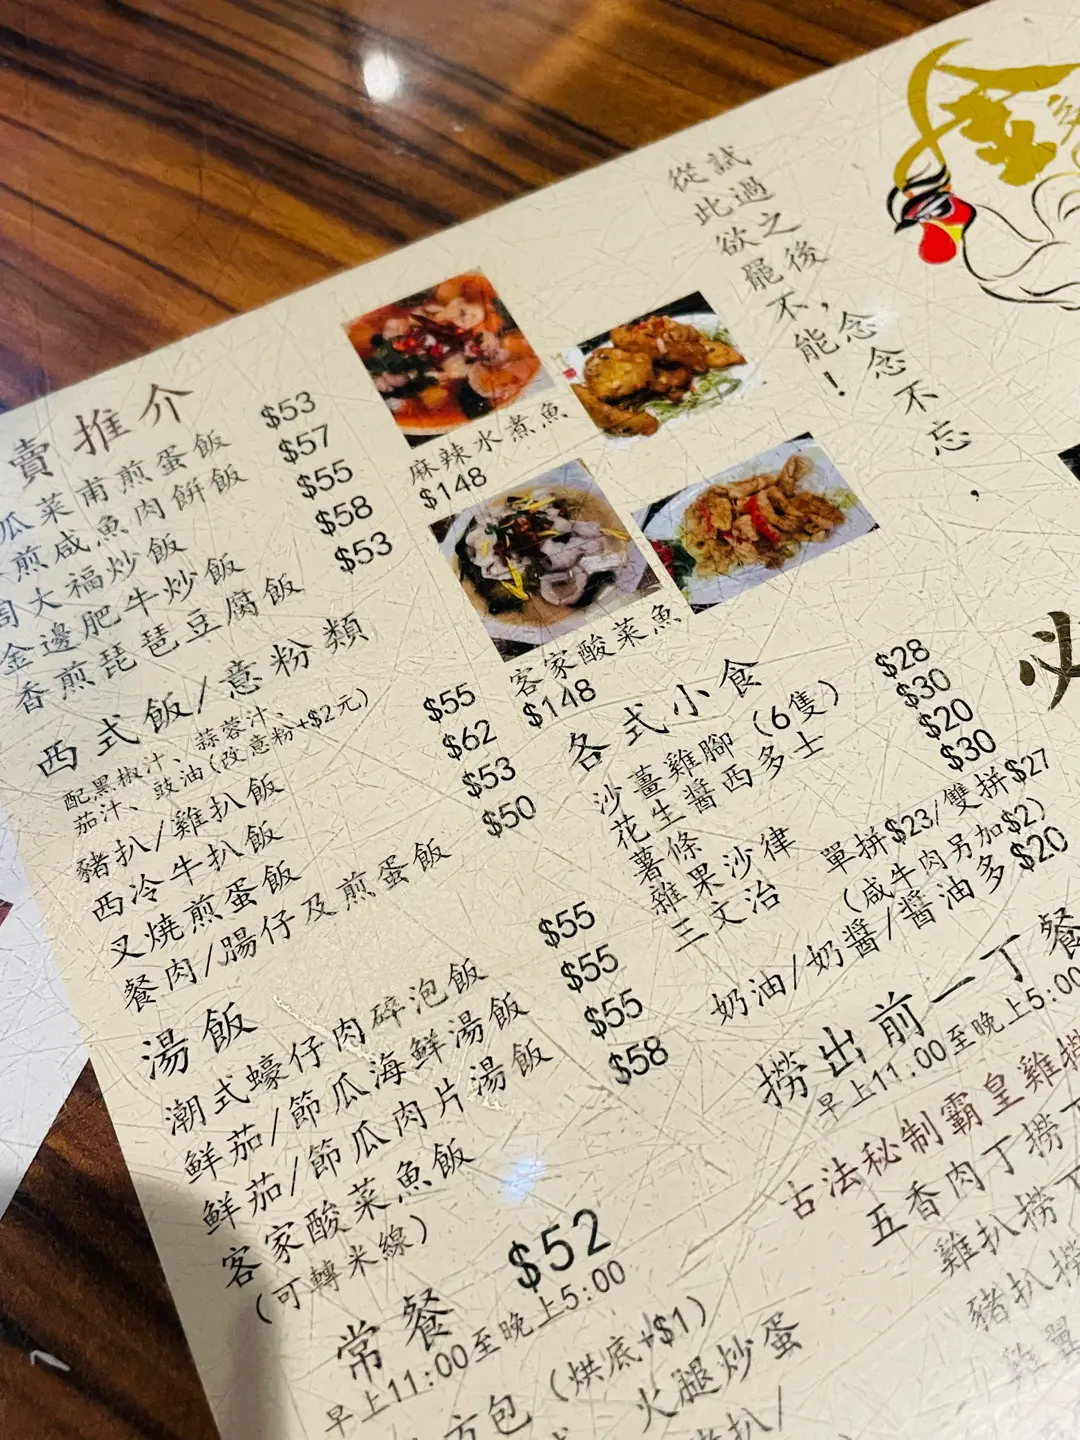 試過之後，念念不忘，
從此欲罷不能！
賣推介
瓜菜甫煎蛋飯 $53
煎咸魚肉餅飯 $57
周大福炒飯 $55
金邊肥牛炒飯 $58
香煎琵琶豆腐飯 $53
麻辣水煮魚
$148
客家酸菜魚
$148
西式飯/意粉類
配黑椒汁、蒜蓉汁、
茄汁、豉油(改意粉+$2元)
豬扒/雞扒飯 $55
西冷牛扒飯 $62
叉燒煎蛋飯 $53
餐肉/腸仔及煎蛋飯 $50
湯飯
潮式蠔仔肉碎泡飯 $55
鮮茄/節瓜海鮮湯飯 $55
鮮茄/節瓜肉片湯飯 $55
客家酸菜魚飯 $58
(可轉米線)
常餐 $52
早上11:00至晚上5:00
方包 (烘底+$1)
火腿炒蛋
豬扒/
各式小食
沙薑雞腳 (6隻) $28
花生醬西多士 $30
薯條 $20
雜果沙律 $30
三文治 單拼$23/雙拼$27
(咸牛肉另加$2)
奶油/奶醬/醬油多 $20
撈出前一丁餐
早上11:00至晚上5:00
古法秘制霸皇雞撈
五香肉丁撈丁
雞扒撈丁
豬扒撈
雞翼